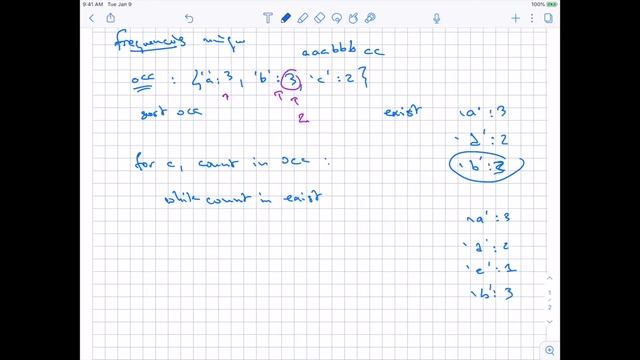 9:41 AM Tue Jan 9
100%
frequencies uniqu
aaabbb cc
occ : {'a':3, 'b':3, 'c':2}
2
sort occ
exist
'a':3
'd':2
'b':3
for c, count in occ :
while count in exist
'a':3
'd':2
'e':1
'b':3
1
2